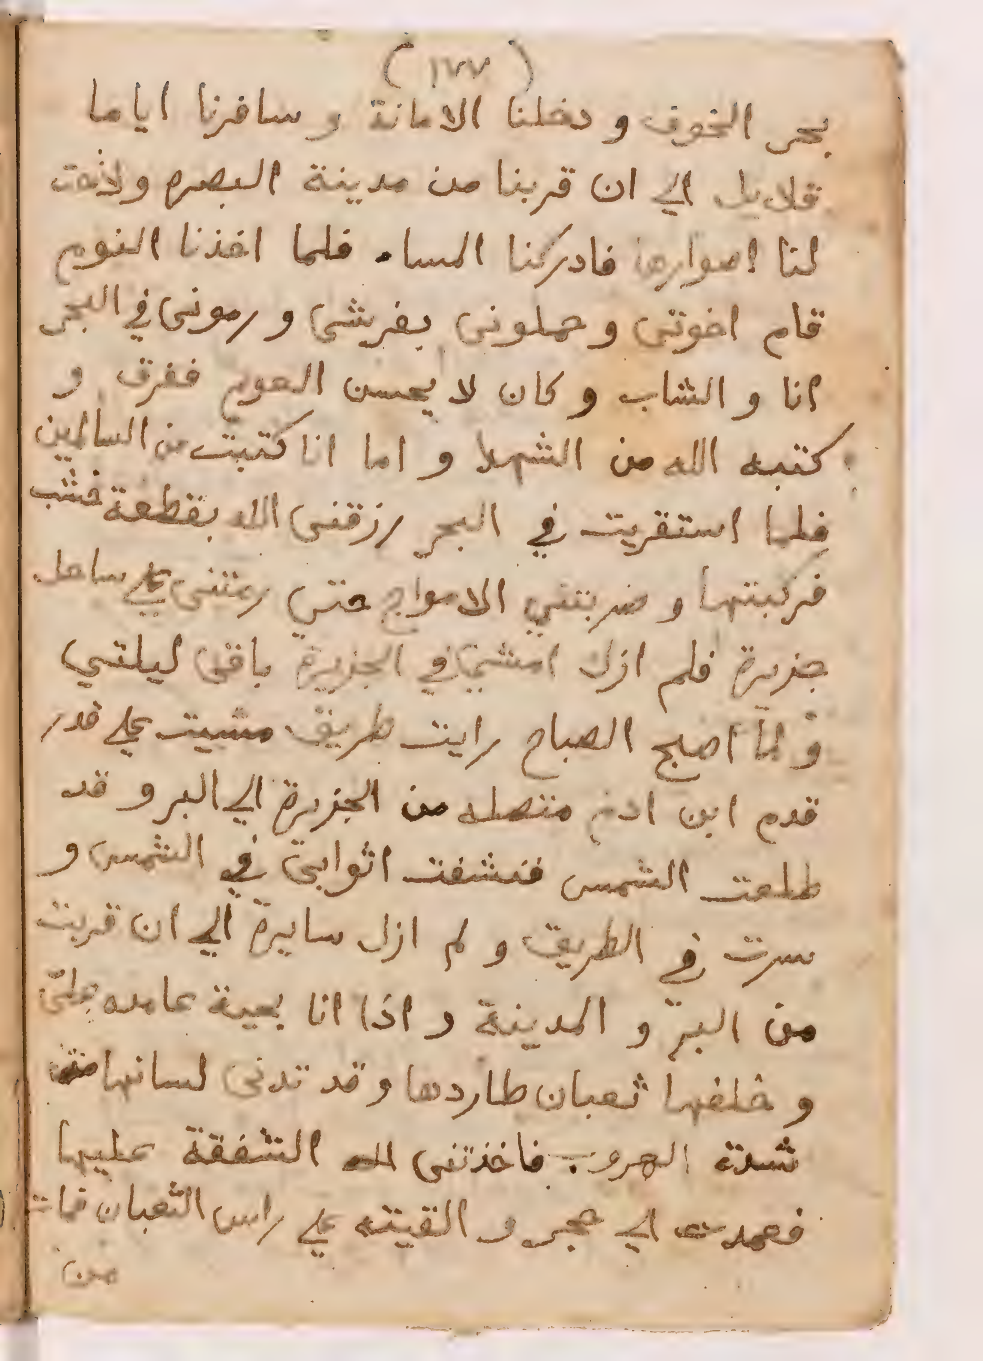 (١٧٧)
بحر الخوف و دخلنا الامانة و سافرنا اياما
قلايل الي ان قربنا من مدينة البصره ولاحت
لنا اصوارها فادركنا المساء فلما اخذنا النوم
قام اخوتي و حملوني بفرشي و رموني في البحر
انا و الشاب و كان لا يحسن العوم فغرق و
كتبه الله من الشهدا و اما انا كتبت من السالمين
فلما استقريت في البحر رزقني الله بقطعة خشب
فركبتها و ضربتني الامواج حتي رمتني علي ساحل
جزيرة فلم ازل امشي في الجزيرة باقي ليلتي
و لمّا اصبح الصباح رايت طريق مشيت علي قدر
قدم ابن ادم متصله من الجزيرة الي البر و قد
طلعت الشمس فنشفت اثوابي في الشمس و
سرت في الطريق و لم ازل سايرة الي ان قربت
من البرّ و المدينة و اذا انا بحية عامده عليّ
و خلفها ثعبان طاردها و قد تدلي لسانها من
شدة الهروب فاخذتني الشفقة عليها
فعمدت الي حجر و القيته علي راس الثعبان فمات
من